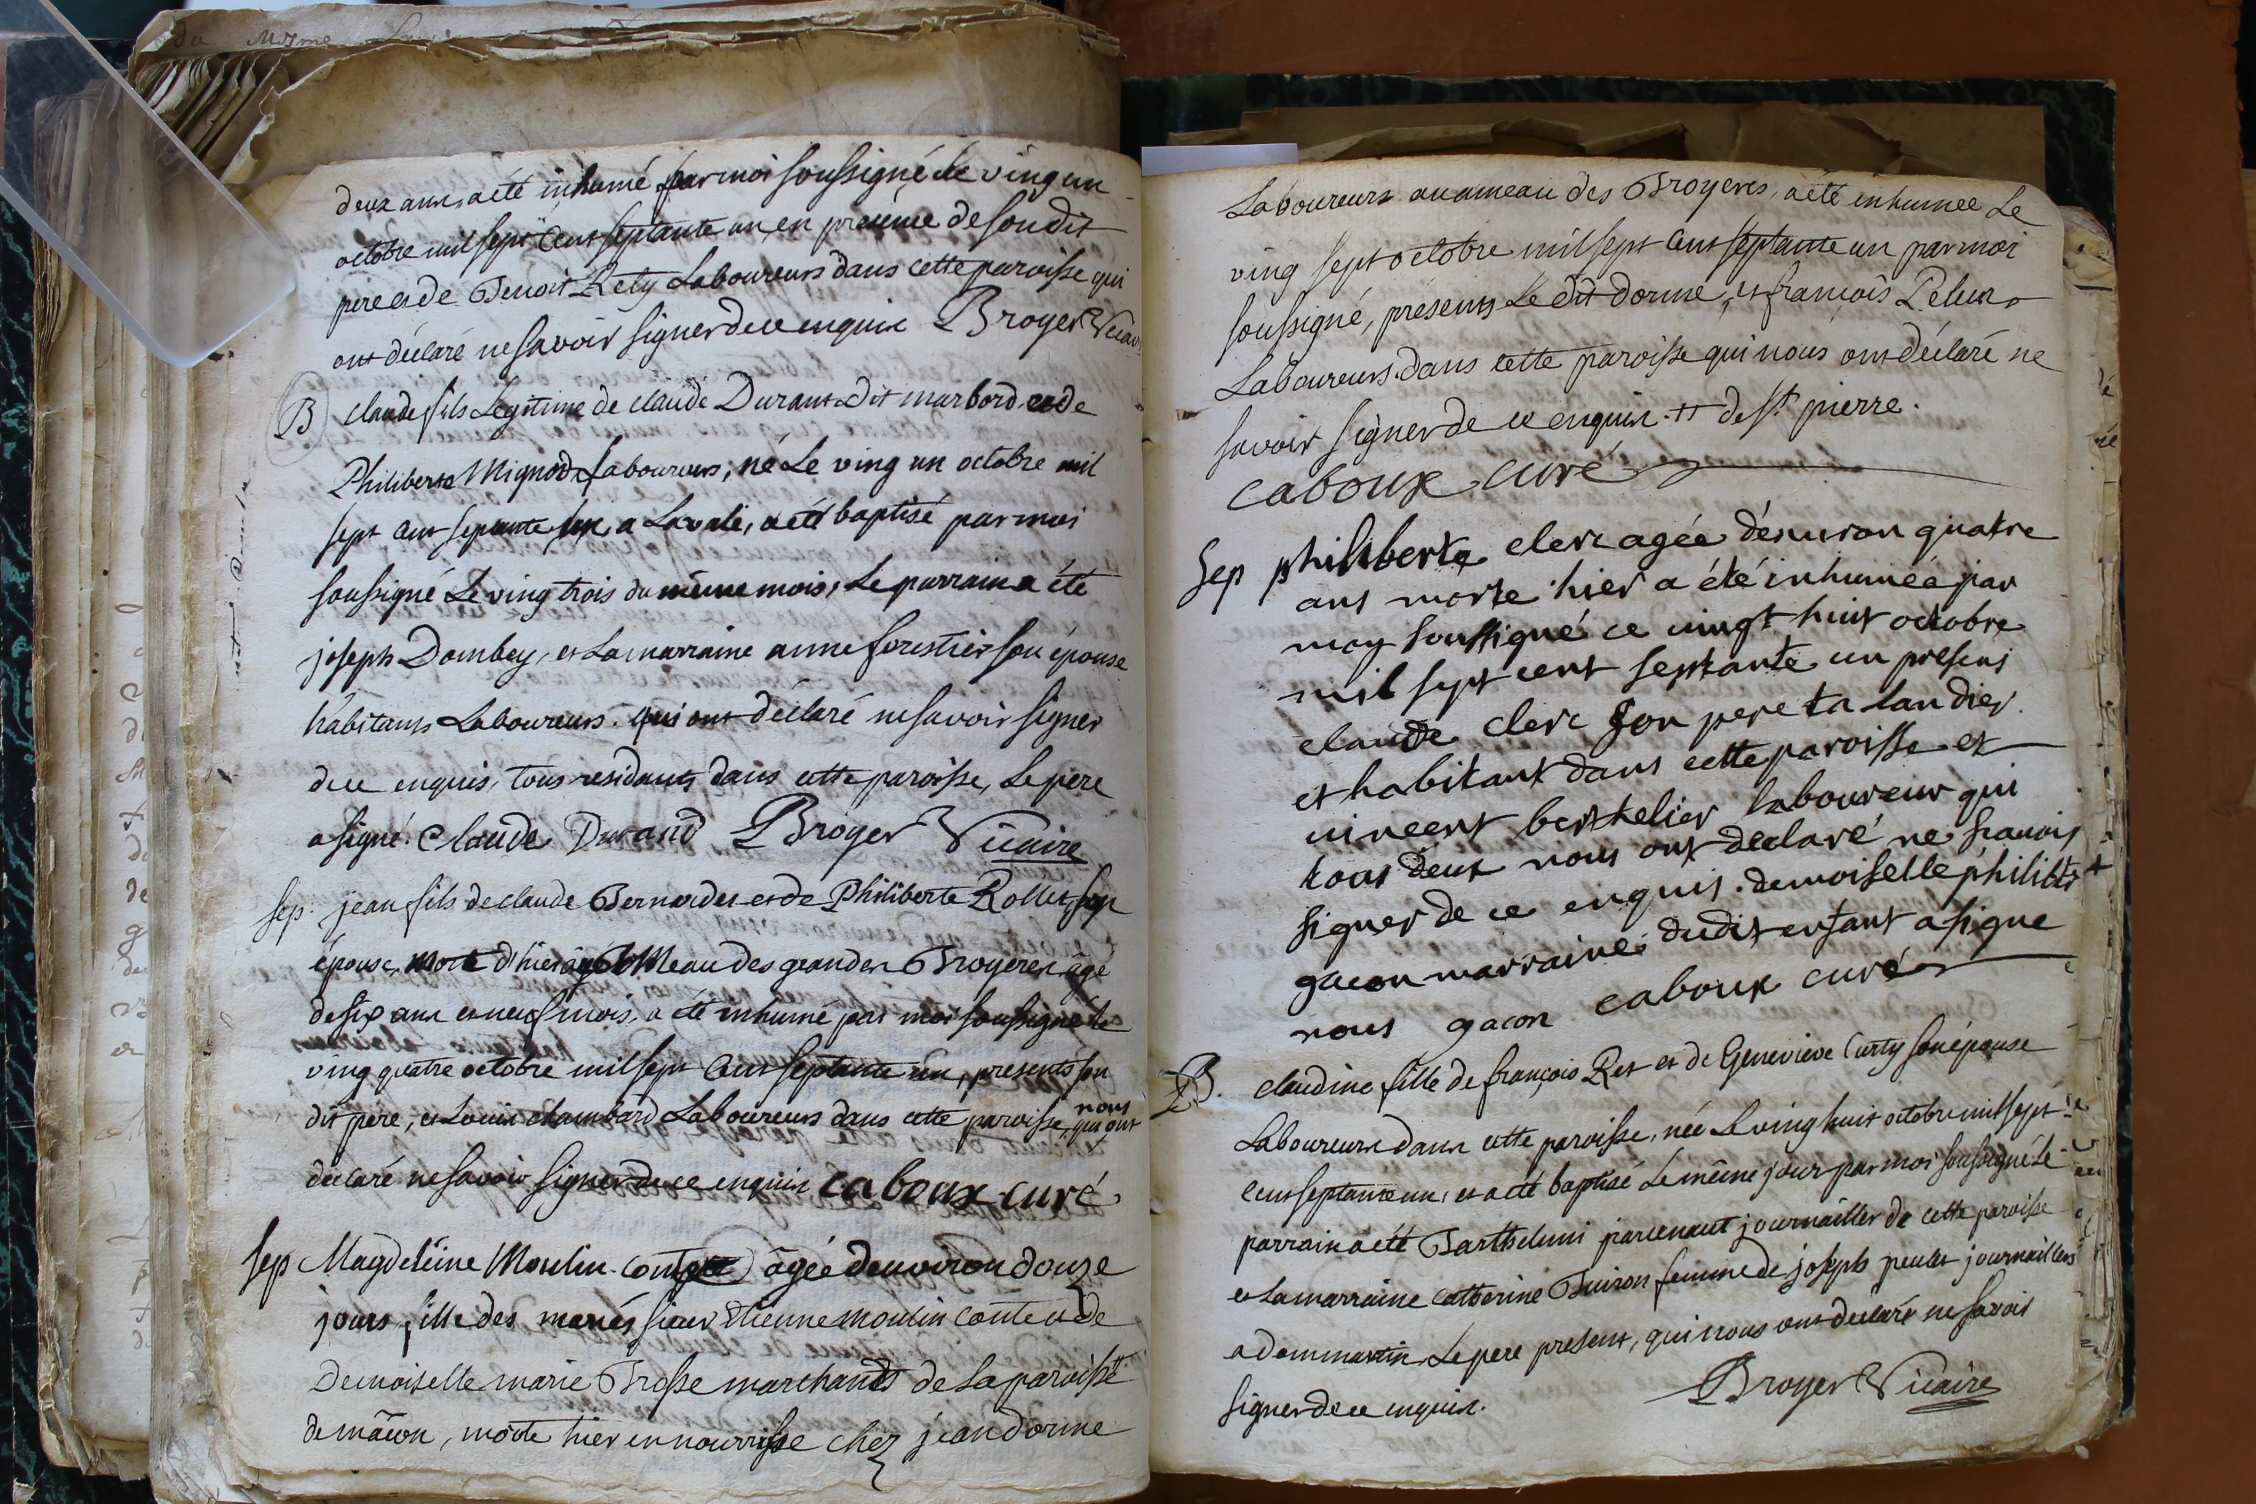 deux ans, a été inhumé par moi soussigné le ving un
octobre mil sept cent septante un, en presence de son dit
pere et de Benoit Rety Laboureurs dans cette paroisse qui
ont déclaré ne savoir signer de ce enquis Broyer Vicaire
B claude fils Legitime de claude Durant dit marbord et de
Philiberte Mignod Laboureurs, né Le ving un octobre mil
sept cent septante un a Lavale, a été baptisé par moi
soussigné Le ving trois du même mois, Le parrain a été
joseph Dombey, et La marraine anne forestier son épouse
habitants Laboureurs. qui ont déclaré ne savoir signer
de ce enquis, tous residants dans cette paroisse, Le pere
a signé. Claude Durand Broyer Vicaire
sep. jean fils de claude Bernardet et de Philiberte Rollet son
épouse, mort d'hier au ameau des grandes Broyeres âgé
de six ans et neuf mois, a été inhumé par moi soussigné le
ving quatre octobre mil sept cent septante un, presents son
dit pere, et Louis chambard Laboureurs dans cette paroisse, qui nous ont
declaré ne savoir signer de ce enquis caboux curé
sep Magdeleine Moulin âgée d'environ douze
jours, fille des mariés sieur Etienne moulin conte et de
Demoiselle marie Brosse marchands de La paroisse ++
de mâcon, morte hier en nourrisse chez jean dorme
Laboureurs au ameau des Broyeres, a été inhumee Le
ving sept octobre mil sept cent septante un par moi
soussigné, présents Le dit dorme, et françois Pelux
Laboureurs dans cette paroisse qui nous ont déclaré ne
savoir signer de ce enquis. ++ de St. pierre.
caboux curé
Sep philiberte clerc agée d'environ quatre
ans morte hier a été inhumée par
moy soussigné ce vingt huit octobre
mil sept cent septante un presens
claude clerc son pere talandier
et habitant dans cette paroisse et
vincent berthelier laboureur qui
tous deux nous ont declaré ne scavoir
signer de ce enquis. demoiselle philibte
gacon marraine dudit enfant a signe
nous gacon caboux curé
B. claudine fille de françois Ret et de Genevieve Curty son épouse
Laboureurs dans cette paroisse, née Le ving huit octobre mil sept
cent septante un, et a été baptisé Le même jour par moi soussigné Le
parrain a été Barthelemi parcenaut journaillier de cette paroisse
et La marraine catherine Buiron femme de joseph peulet journailliers
a dommartin, Le pere present, qui nous ont declaré ne savoir
signer de ce enquis. Broyer Vicaire